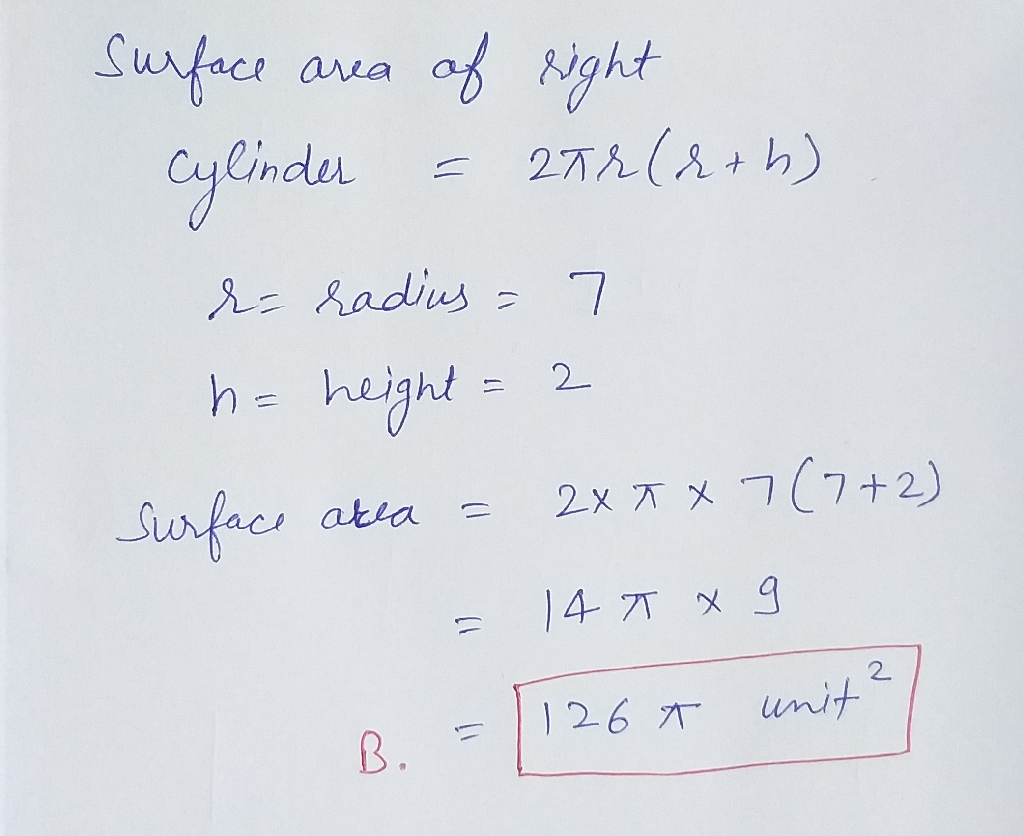 Surface area of right
cylinder = 2πr(r+h)
r = radius = 7
h = height = 2
Surface area = 2×π×7(7+2)
= 14π × 9
B. = 126π unit²